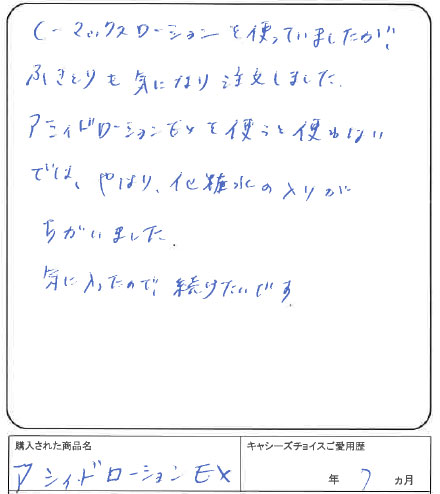 C-マックスローションを使っていましたが、
ふきとりも気になり注文しました.
アシィドローションEXを使うと使わない
では、やはり、化粧水の入りが
ちがいました.
気に入ったので、続けたいです.
購入された商品名
キャシーズチョイスご愛用歴
アシィドローションEX
年 7 ヵ月